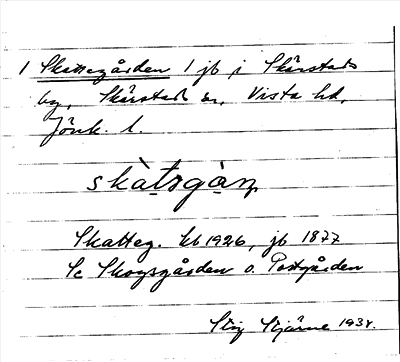 1 Skattegården 1 jb i Skärstads
by, Skärstads sn, Vista hd,
Jönk. l.
skàtsgàn
Skatteg. kb 1926, jb 1877
Se Skogsgården o. Postgården
Stig Stjärne 1934.